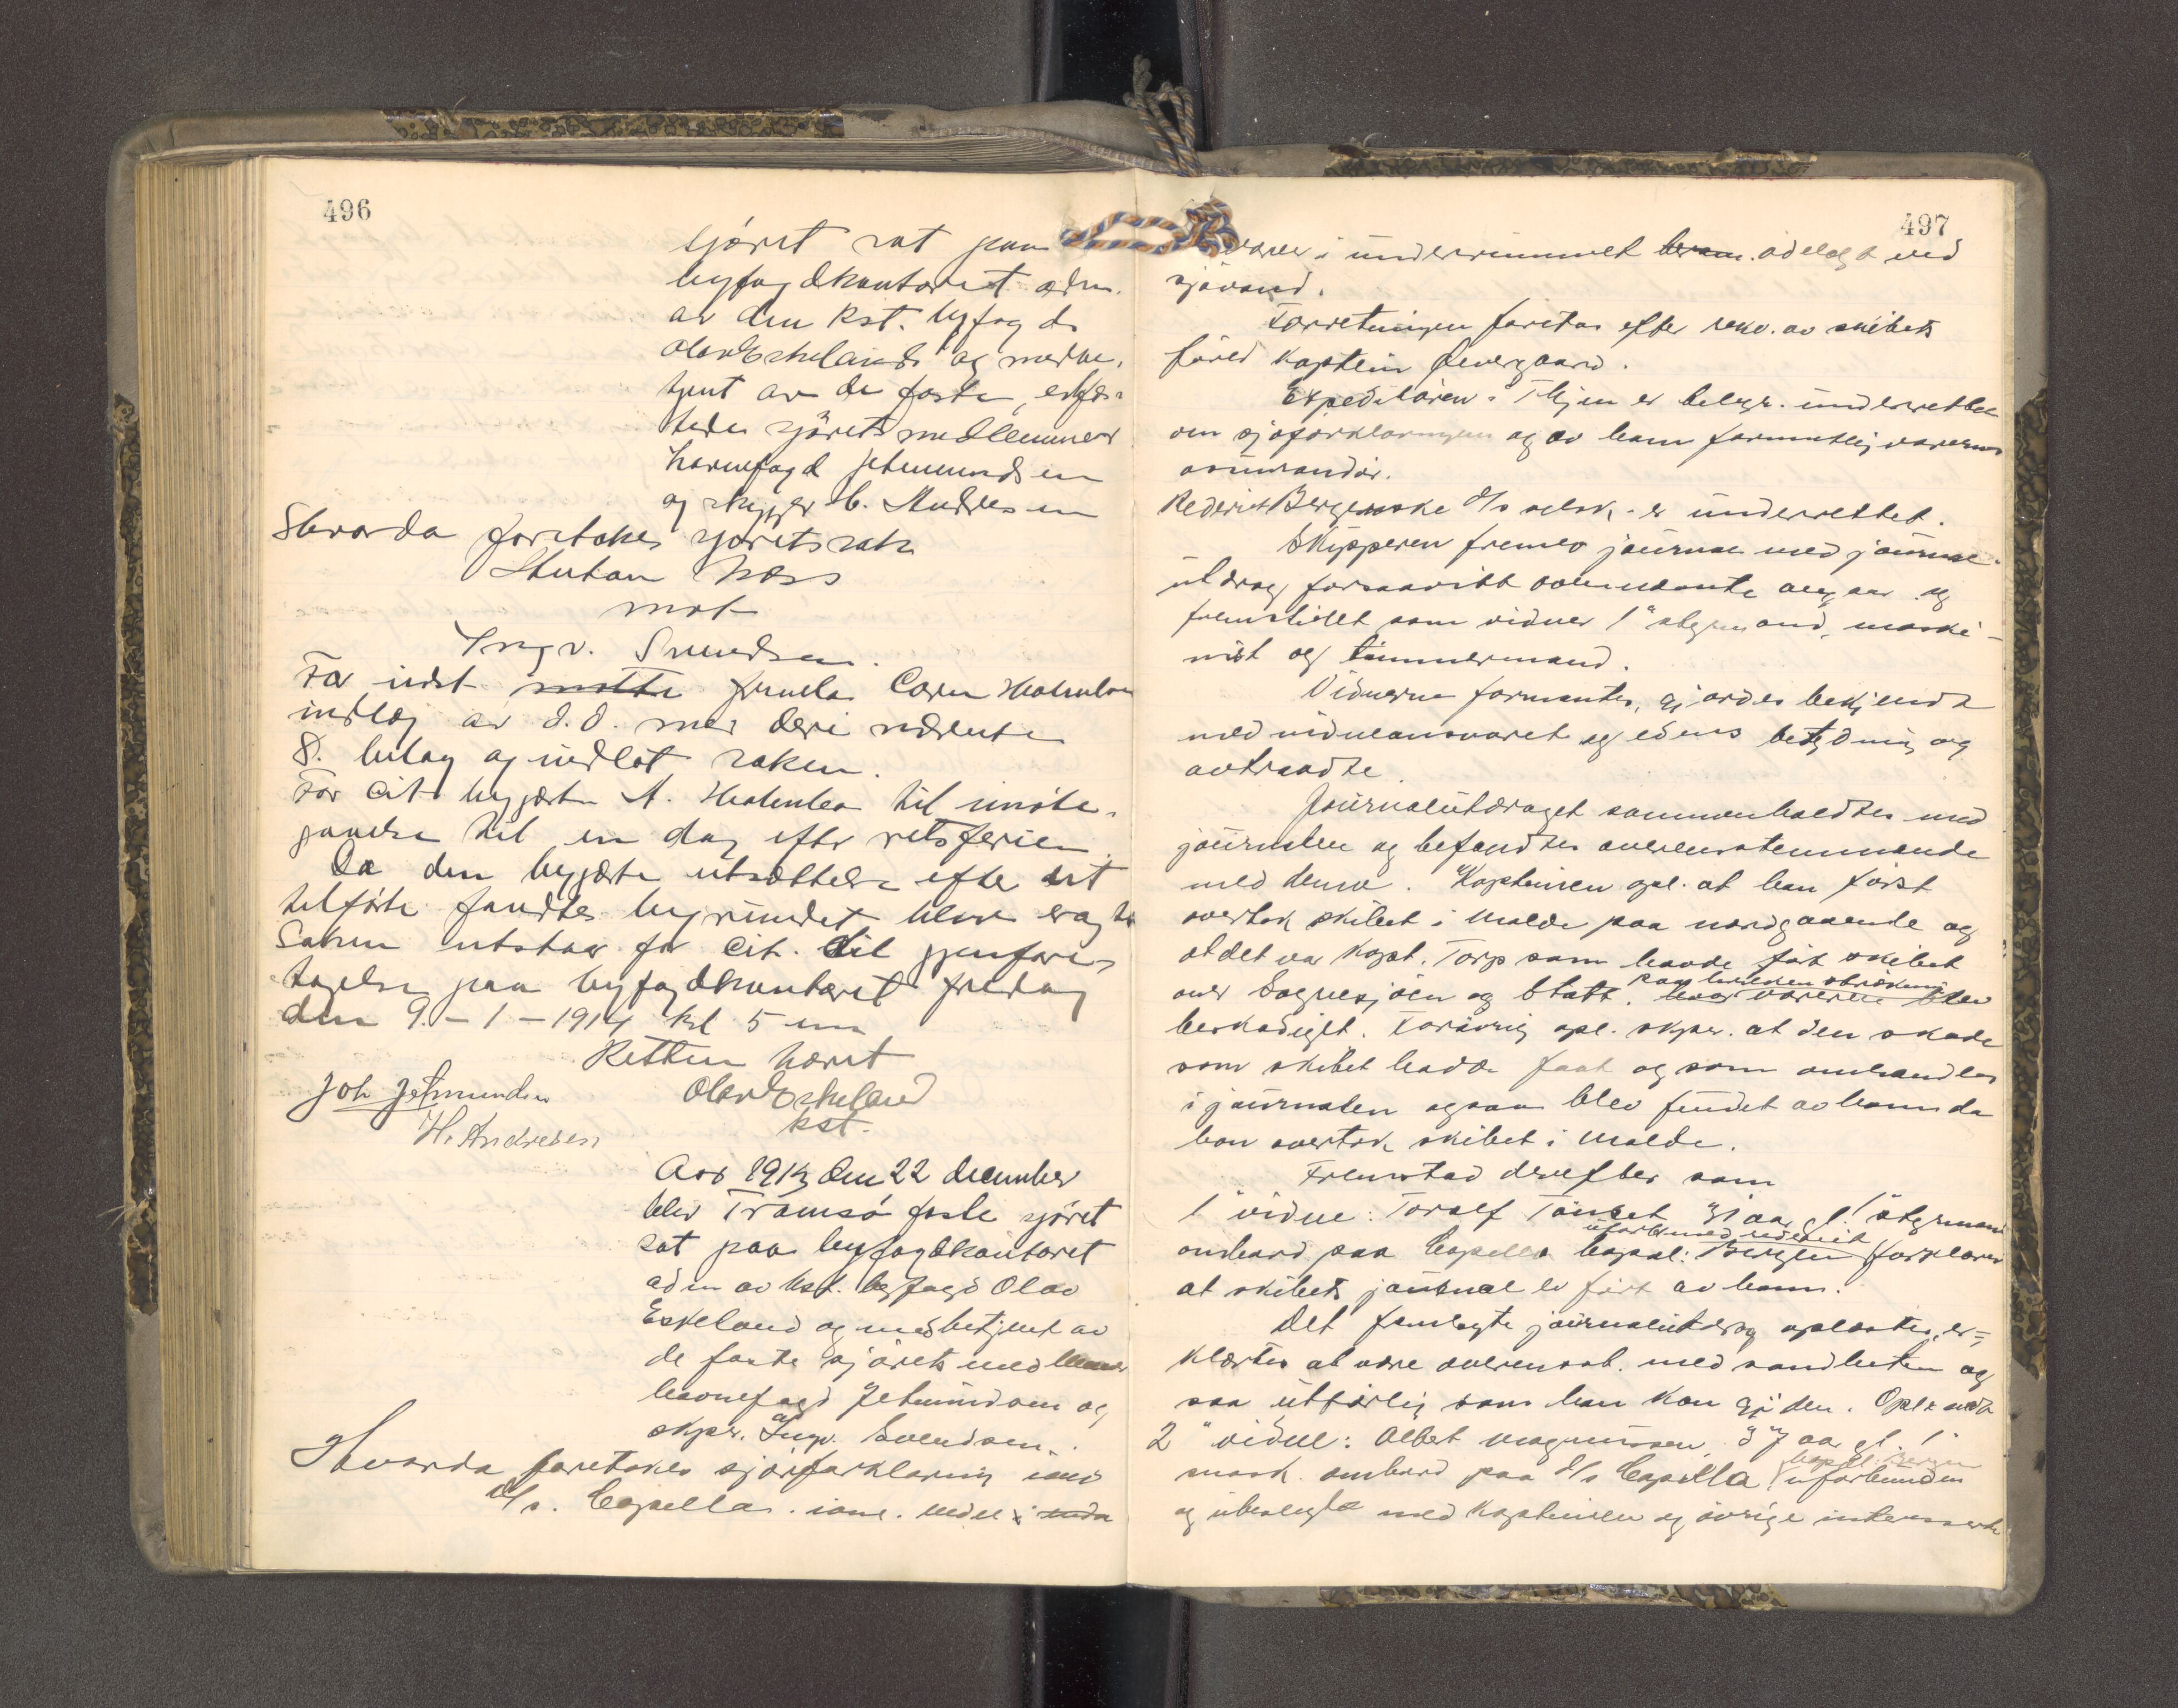 496
sjøret sat paa
byfogdkontoret adm.
av den kst. byfogd
Olav Eskeland og medbe-
tjent av de faste, edfæs-
tede sjøretsmedlemmer
havnefogd Jetmundsen
og skipper H. Andresen
Hvorda foretokes sjøretssak
Næss
mot
Ingv. Svendsen.
For indst. motte fremla
indlæg av d.d. med deri nævnte
8. bilag og indlot saken.
For Cit begjærte A. til imøte-
gaaelse til en dag efter retsferien
Da den begjærte utsættelse efter det
tilførte fandtes begrundet blev eragtet
Saken utstaar for Cit. til gjenfore-
tagelse paa byfogdkontoret fredag
den 9-1-1914 kl 5 em
Retten hævet
Joh Jetmundsen Olav Eskeland
H. Andresen kst.
Aar 1913 den 22 december
blev Tromsø faste sjøret
sat paa byfogdkontoret
adm av kst. byfogd Olav
Eskeland og medbetjent av
de faste sjørets medlemmer
havnefogd Jetmundsen og
skpr. Ingv. Svendsen.
Hvorda foretokes sjøforklaring med
D/s. Capella
497
varer i underrummet ødelagt ved
sjøvand.
Forretningen foretas efter rekv. av skibets
fører Kaptein
Expeditøren i Thjem er telegr. underrettet
om sjøforklaringen og av ham formentlig varernes
assurandør.
Rederiet Bergenske D/s selsk. er underrettet.
Skipperen fremla journal med journal-
utdrag forsaavidt angaar og
fremstillet som vidner 1ste styrmand, maski-
nist og tømmermand.
Vidnerne formantes, gjordes bekjendt
med vidneansvaret og edens betydning og
avtraadte.
Journalutdraget sammenholdtes med
journalen og befandtes overensstemmende
med denne. Kapteinen opl. at han først
overtok skibet i Molde paa nordgaaende og
at det var Kapt. Torp som havde ført skibet
over Sognesjøen og Statt. paa hvilken strækning
varerne blev
beskadiget. Forøvrig opl. skpr. at den skade
som skibet hadde faat og som omhandles
i journalen ogsaa blev fundet av ham da
han overtok skibet i Molde.
Fremstod derefter som
1" vidne: Toralf Tønset 31 aar gl. 1" styrmand
uforb. med rederiet
ombord paa Capella bopæl: Bergen forklarer
at skibets journal er ført av ham.
Det fremlagte journalutdrag oplæstes, er-
klærtes at være overensst. med sandheten og
saa utførlig som han kan gi den. Opl. med
2" vidne: Albert Magnussen, 37 aar gl. 1"
bopæl Bergen
mask. ombord paa D/s Capella, uforbunden
og ubeslegtet med kapteinen og øvrige interesserte